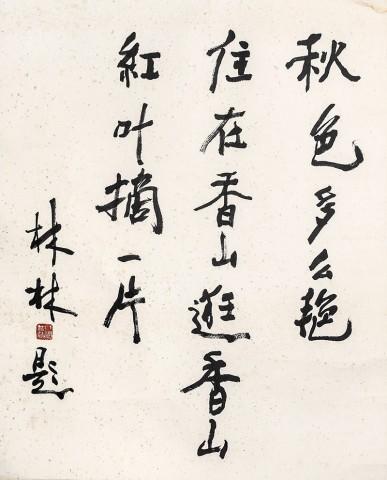 秋色多么艳
住在香山逛香山
紅叶摘一片
林林題